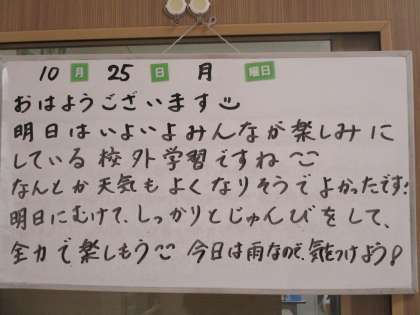 10月 25日 月 曜日
おはようございます
明日はいよいよみんなが楽しみに
している校外学習ですね
なんとか天気もよくなりそうでよかったです!
明日にむけて、しっかりとじゅんびをして、
全力で楽しもう 今日は雨なので、気をつけよう!